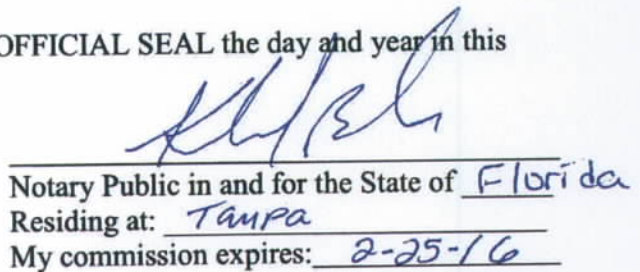 OFFICIAL SEAL the day and year in this
Notary Public in and for the State of Florida
Residing at: Tampa
My commission expires: 2-25-16